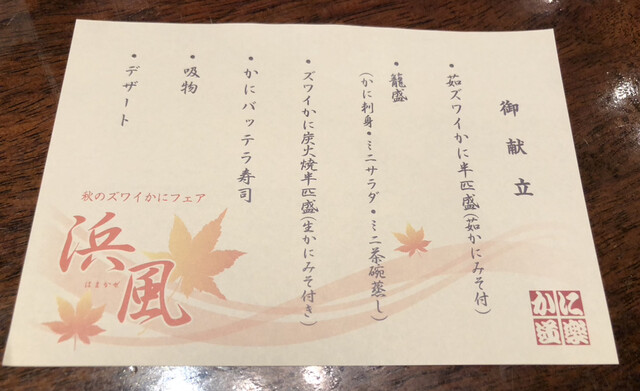 御献立
・茹ズワイかに半匹盛(茹かにみそ付)
・籠盛
(かに刺身・ミニサラダ・ミニ茶碗蒸し)
・ズワイかに炭火焼半匹盛(生かにみそ付き)
・かにバッテラ寿司
・吸物
・デザート
秋のズワイかにフェア
浜風
はまかぜ
かに道楽